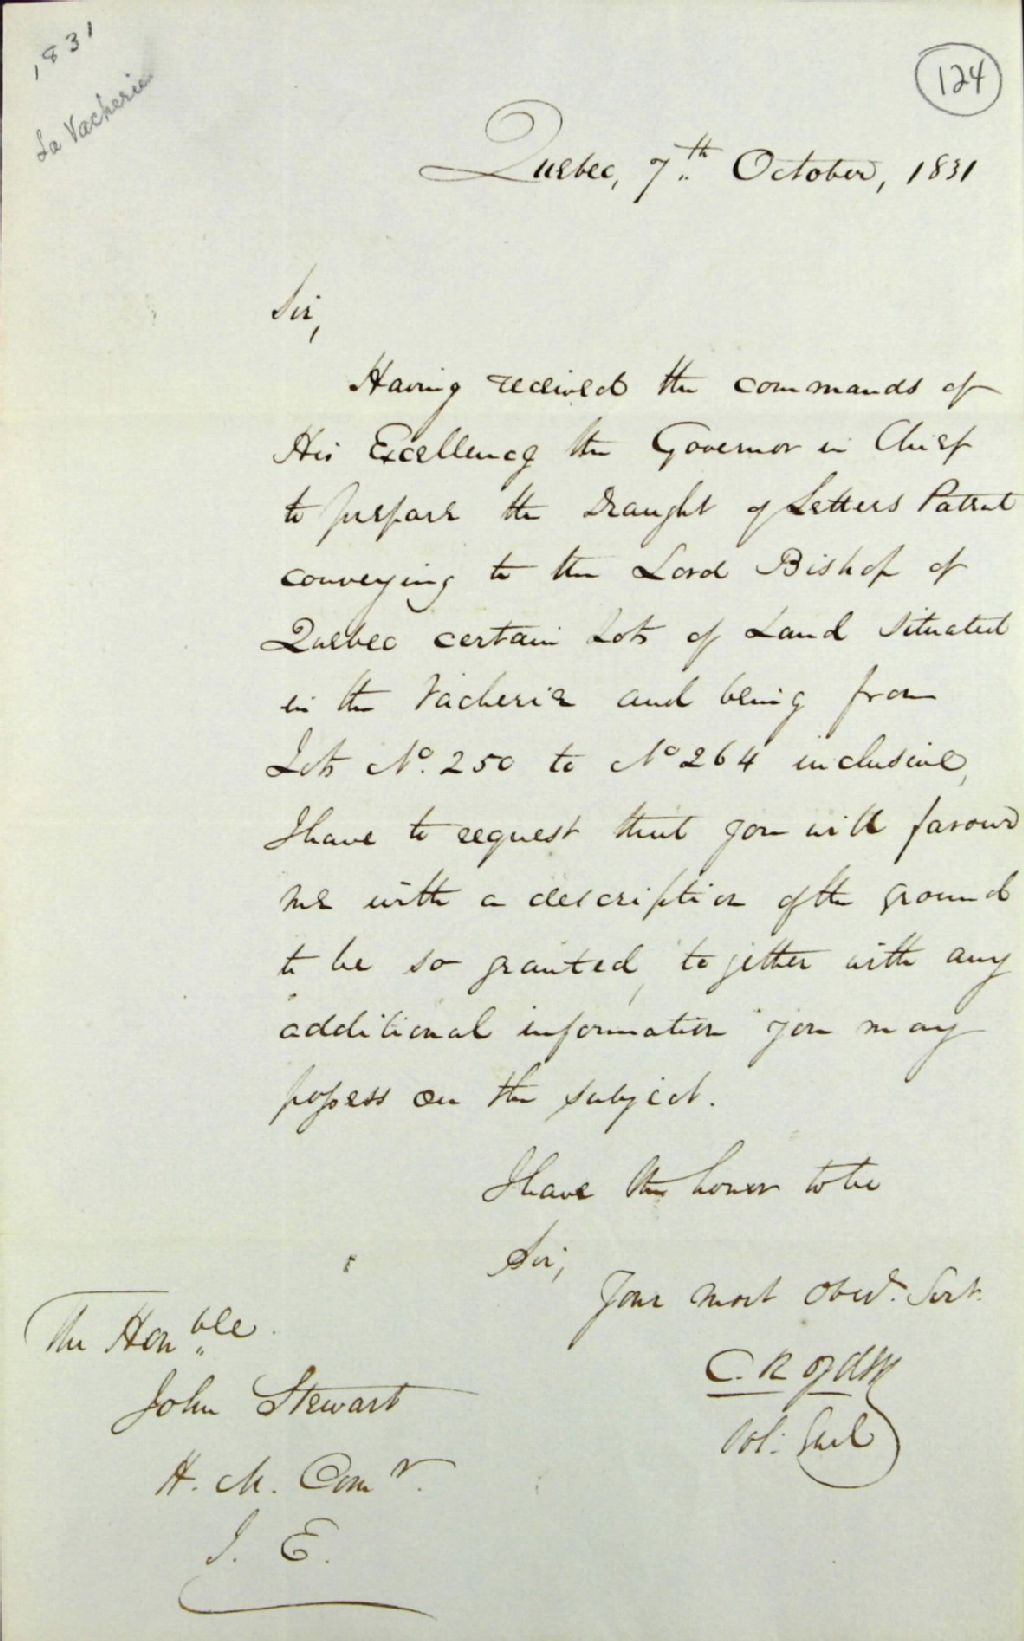 1831
La Vacherie
124
Quebec, 7th October, 1831
Sir,
Having received the commands of
His Excellency the Governor in Chief
to prepare the Draught of Letters Patent
conveying to the Lord Bishop of
Quebec certain Lots of Land situated
in the Vacherie and being from
Lots No. 250 to No 264 inclusive,
I have to request that you will favour
me with a description of the ground
to be so granted, together with any
additional information you may
possess on the subject.
I have the honor to be
Sir,
Your most Obedt. Servt.
C. R. Ogden
Sol: Genl
The Honble
John Stewart
H. M. Comr.
J. E.